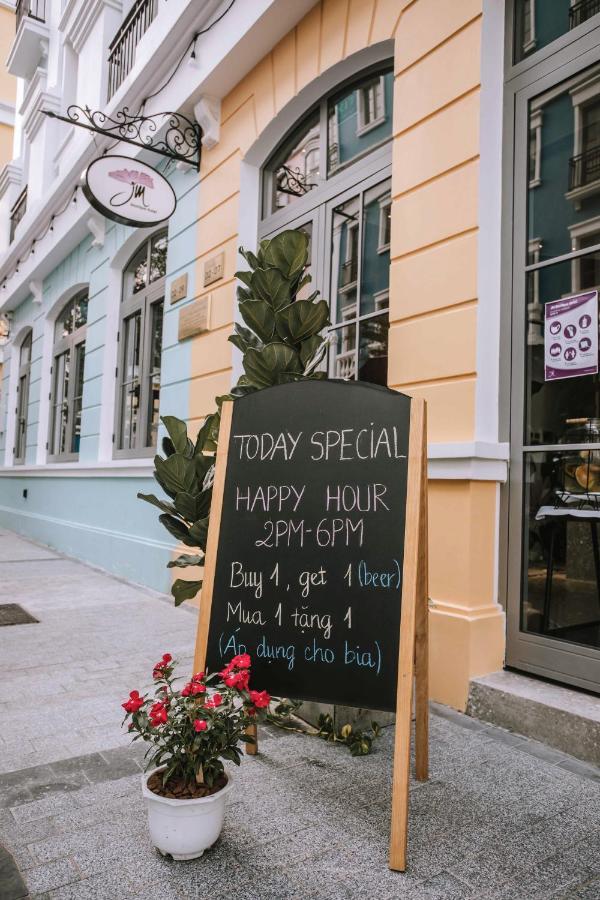 JM
TODAY SPECIAL
HAPPY HOUR
2PM-6PM
Buy 1, get 1 (beer)
Mua 1 tặng 1
(Áp dụng cho bia)